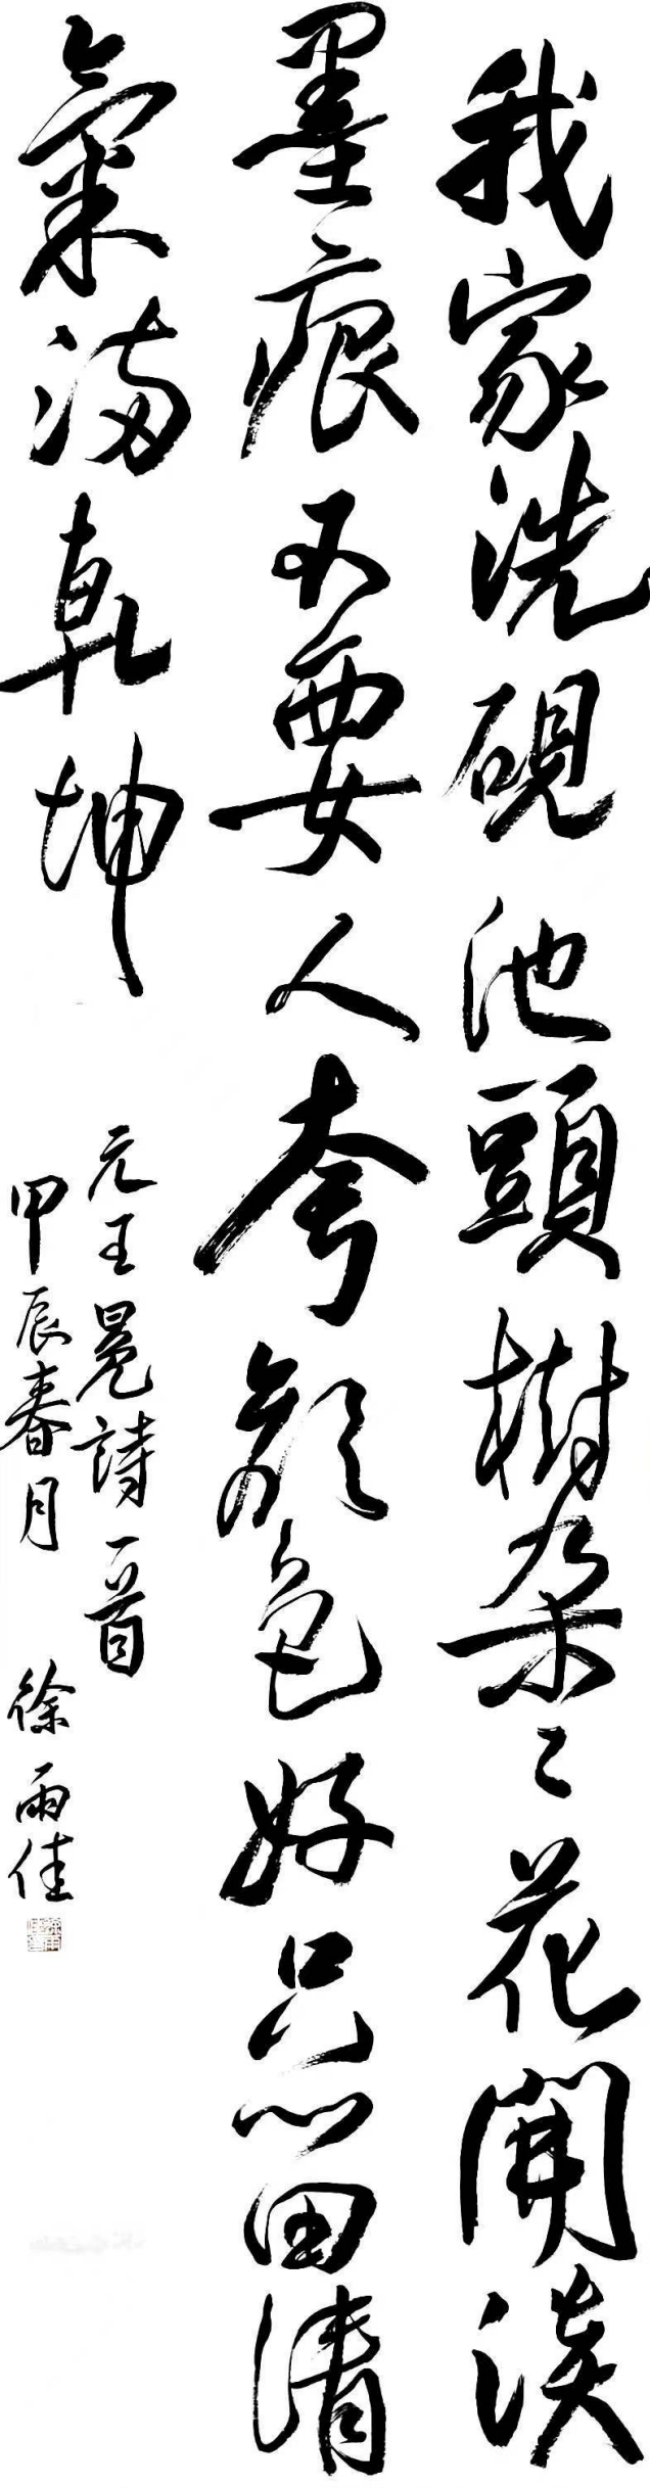 我家洗硯池頭樹朵々花開淡
墨痕不要人夸顏色好只留清
氣滿乾坤
元王冕詩一首
甲辰春月 徐雨佳